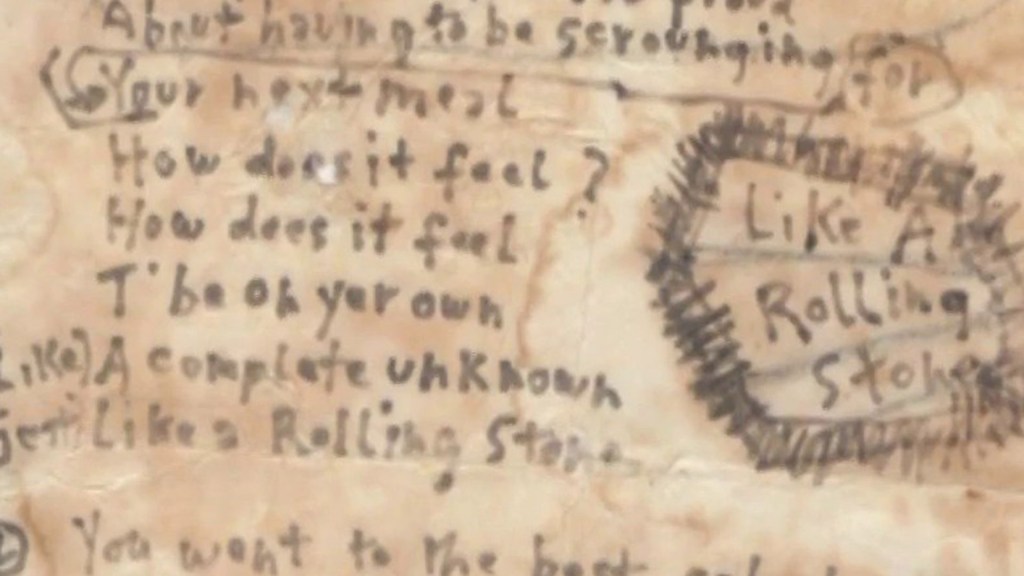 proud
About having to be scrounging for
Your next meal
How does it feel ?
How does it feel
T' be on yer own
Like) A complete unknown
Like a Rolling Stone
You want to the best
Like A
Rolling
Stone